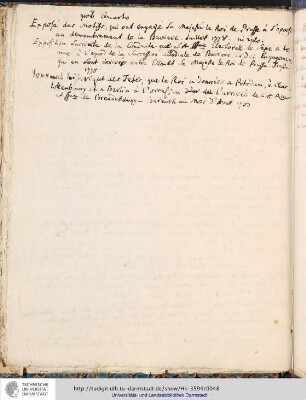 Exposé des motifs, qui ont engagé Sa Majesté le Roi de Prusse à s'opposer
au demembrement de la Baviere. Juillet 1778. in 4to.
Exposition succincte de la Conduite que S. A. Electorale de Saxe a te-
nue à l'egard de la succession allodiale de Baviere
qui en sont survenus entre Elle et Sa Majesté le Roi de Prusse
1778
Journal des Fetes, que le Roi a données à Potsdam, à Char
lottenbourg et à Berlin à l'occasion de l'arrivée de
de Brandebourg au mois d'Aout
TECHNISCHE
UNIVERSITÄT
DARMSTADT
http://tudigit.ulb.tu-darmstadt.de/show/Hs-3594/0048
Universitäts- und Landesbibliothek Darmstadt